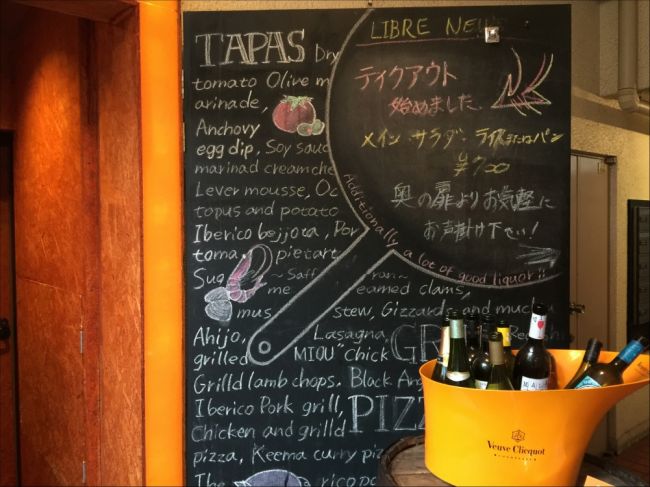 TAPAS Dry
tomato Olive m
arinade,
Anchovy
egg dip, Soy sauc
marinad creamche
Lever mousse, Oc
topus and potato
Iberico bejjota, Por
toma pietart
Sug ~Saff ran~
me eamed clams,
mus stew, Gizzards and much
Ahijo, Lasagna,
grilled MIOU chick
Grilld lamb chops. Black Ang
Iberico Pork grill,
Chicken and grilld PIZZ
pizza, Keema curry piz
The rico po
LIBRE NEW
テイクアウト
始めました、
メイン・サラダ・ライスまたはパン
¥700
奥の扉よりお気軽に
お声掛け下さい!
Additionally a lot of good liquor!!
Veuve Clicquot